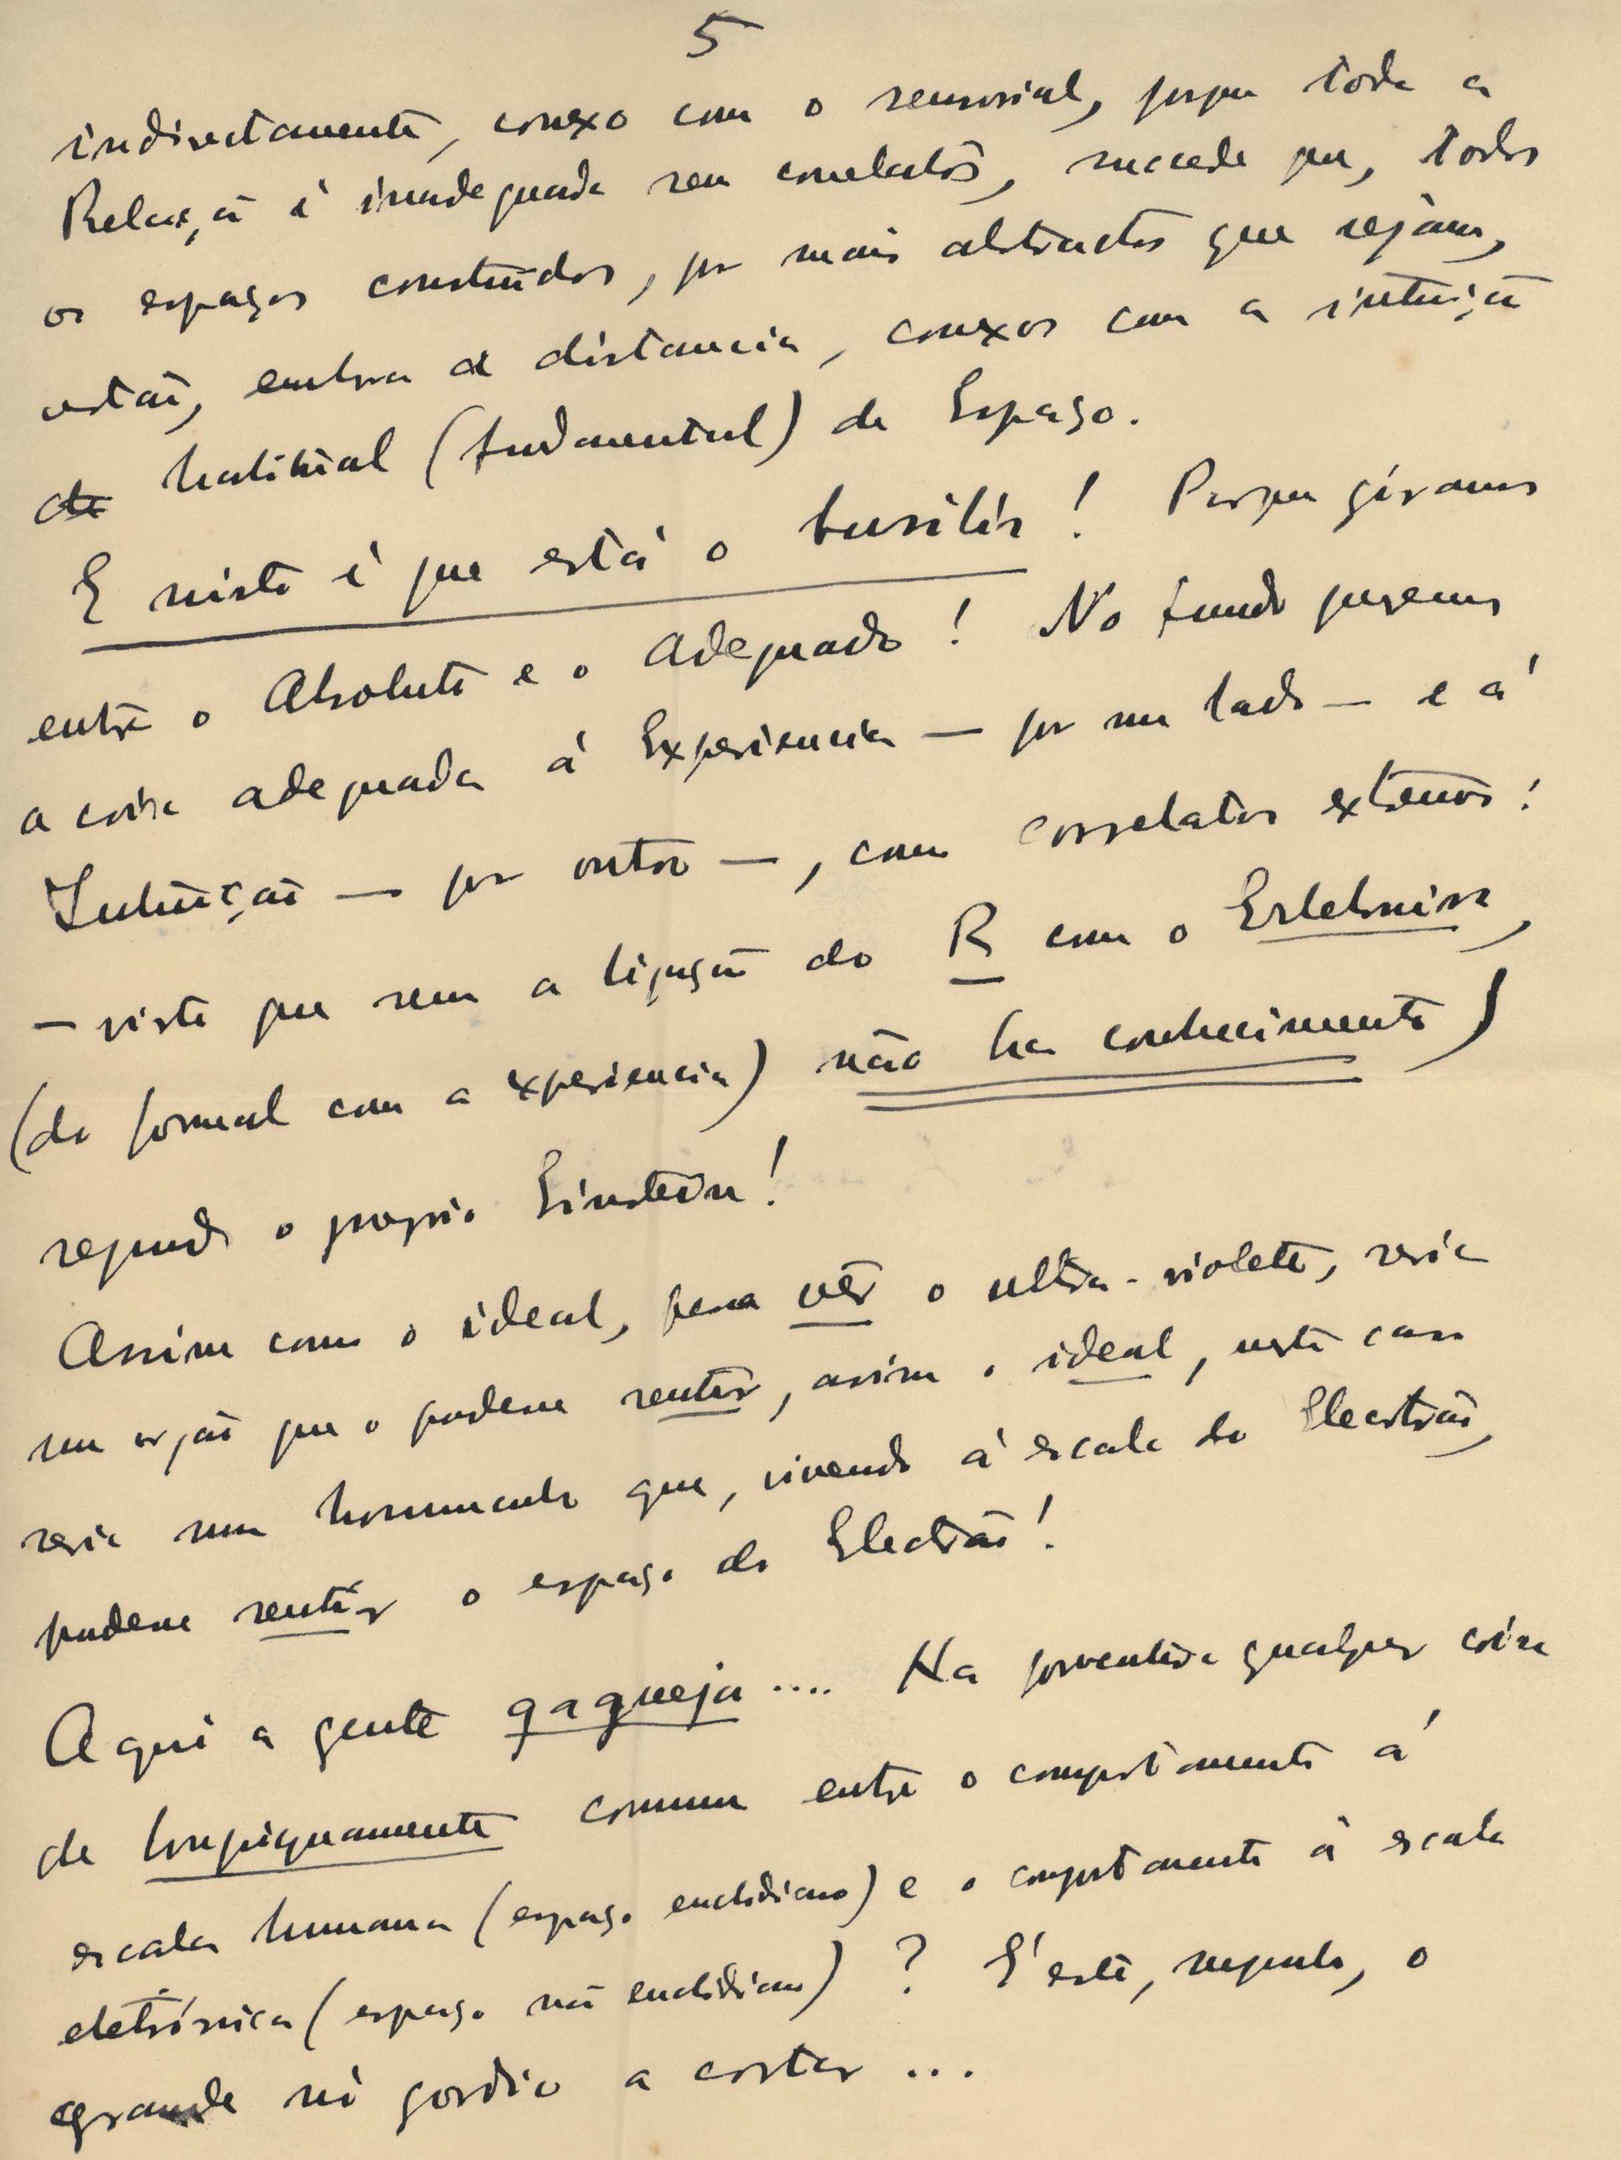 5
indirectamente, conexo com o sensorial, porque toda a
Relação é inadequada sem correlatos, sucede que, todos
os espaços construidos, por mais abstractos que sejam,
estão, embora a distancia, conexos com a intuição
de habitual (fundamental) de Espaço.
E nisto é que está o busilis! Porque giramos
entre o Absoluto e o Adequado! No fundo
a coisa adequada á Experiencia — por um lado — e á
Intuição — por outro —, com correlatos externos!
— visto que sem a ligação do R com o Erlebniss,
(do formal com a experiencia) não ha conhecimento)
segundo o proprio Einstein!
Assim como o ideal, para vêr o ultra-violeta, seria
um orgão que o pudesse sentir, assim o ideal, neste caso
seria um homunculo que, vivendo á escala do Electrão,
pudesse sentir o espaço do Electrão!
Aqui a gente gagueja .... Ha porventura qualquer coisa
de longiquamente commum entre o comportamento á
escala humana (espaço euclidiano) e o comportamento á escala
eletrónica (espaço não euclidiano)? É este, segundo, o
grande nó gordio a cortar ...